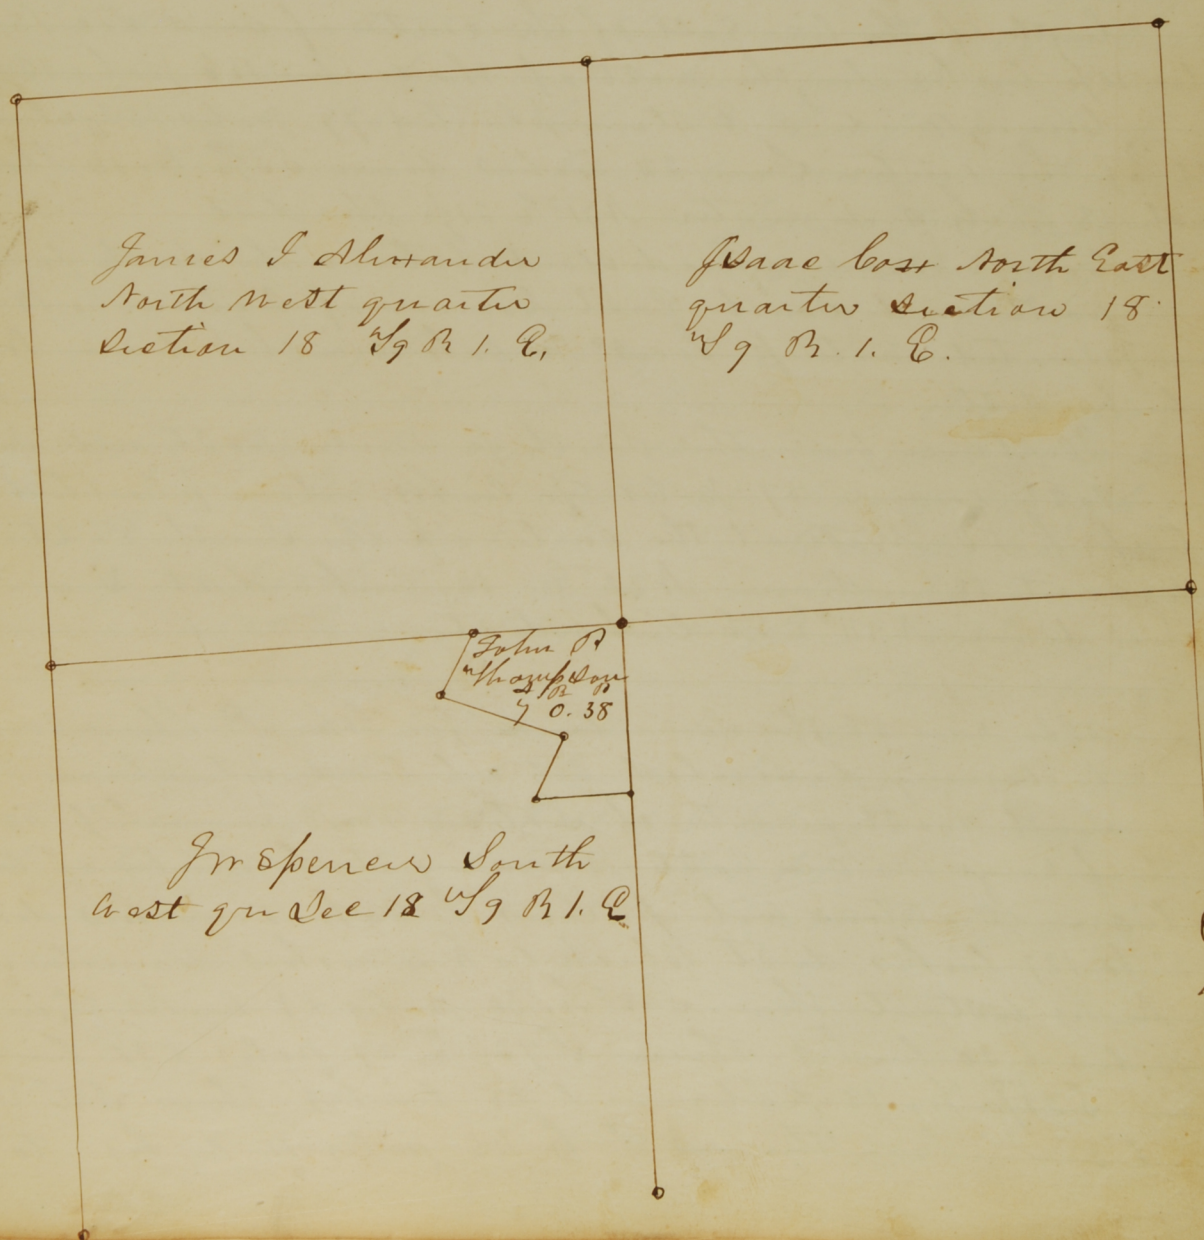 James I Alexander
North West quarter
Section 18 T 9 R 1. E.
Isaac Cox North East
quarter Section 18
T 9 R. 1. E.
John R
Thompson
A R P
7 0. 38
J W Spencer South
West qu Sec 18 T 9 R 1. E